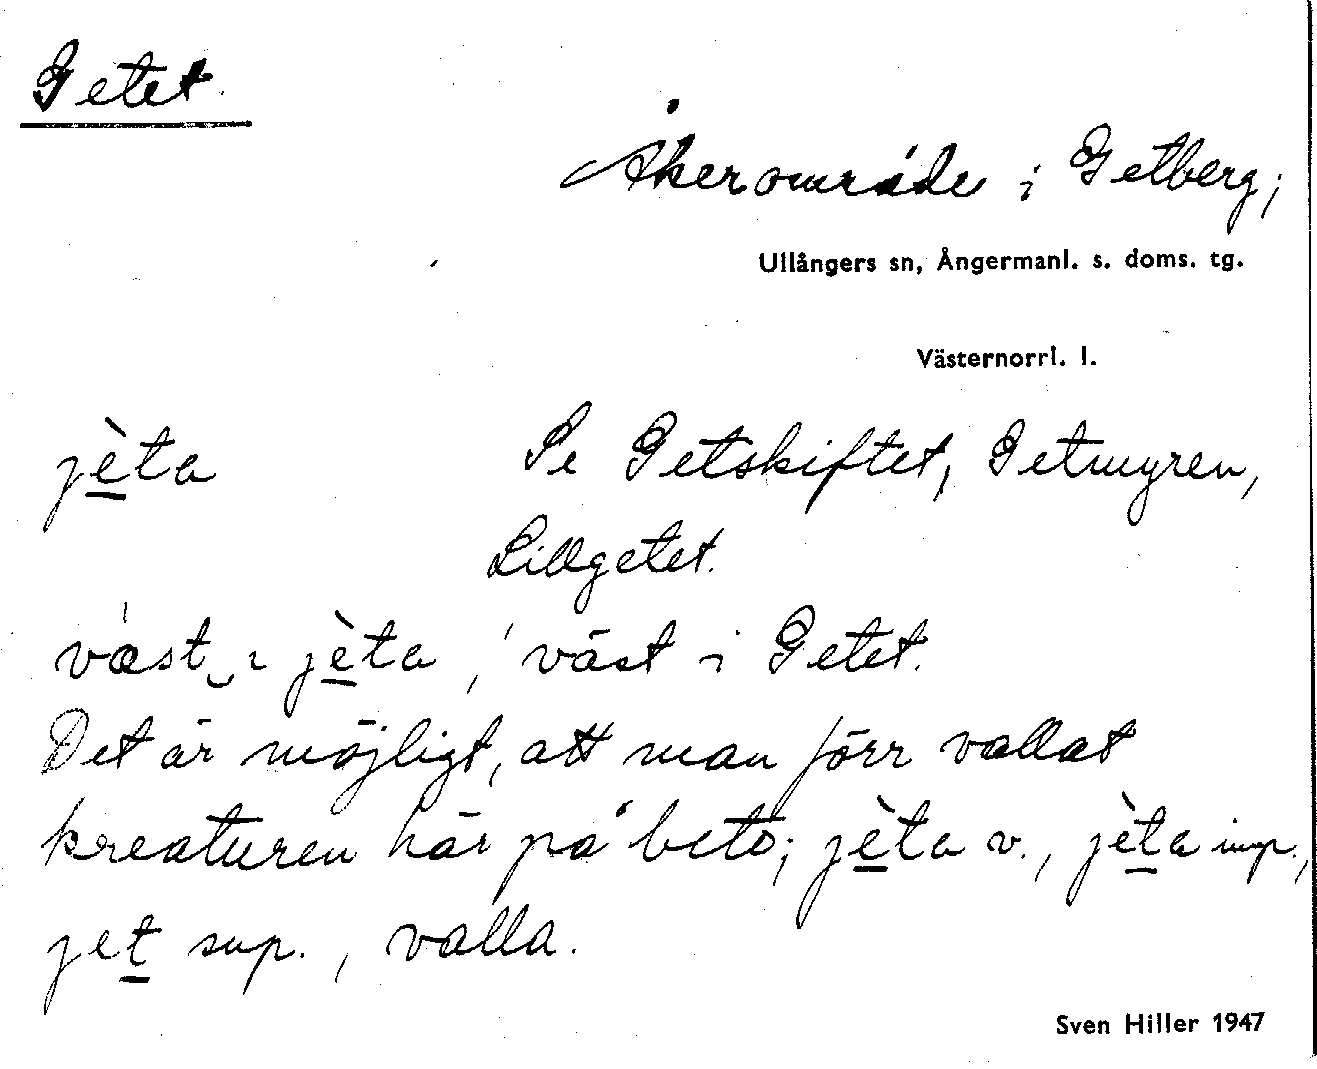 Getet.
Åkerområde i Getberg;
Ullångers sn, Ångermanl. s. doms. tg.
Västernorrl. l.
jèta Se Getskiftet, Getmyren,
Lillgetet.
væst ı jèta, väst i Getet.
Det är möjligt, att man förr vallat
kreaturen här på bete; jèta v., jèta imp.,
jet sup., valla.
Sven Hiller 1947